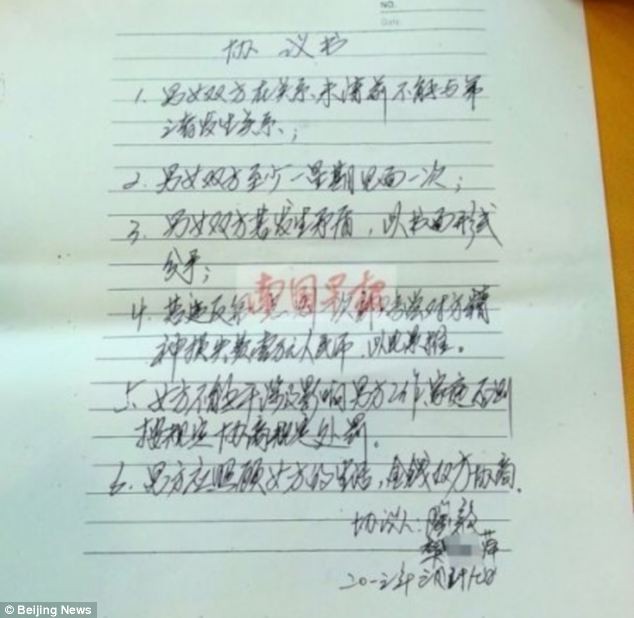 NO.
Date
协议书
1. 男女双方在关系未清前不能与第
三者发生关系;
2. 男女双方至少一星期见面一次;
3. 男女双方若发生矛盾,以书面形式
分手;
南国早报
4. 若违反第 对方精
神损失费 万元人民币,以此类推。
5. 女方不能干涉及影响男方工作、家庭否则
按规定协商 处罚。
6. 男方应照顾女方的生活,金钱双方协商.
协议人:
萍
二〇一三年
© Beijing News